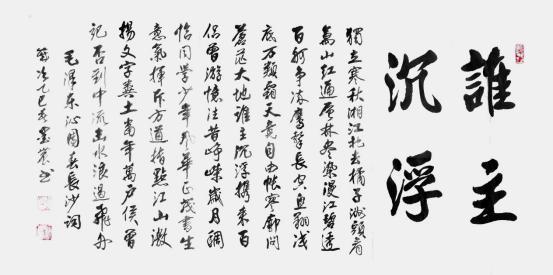 誰主
沉浮
獨立寒秋湘江北去橘子洲頭看
萬山紅遍層林盡染漫江碧透
百舸争流鷹擊長空魚翔淺
底万類霜天競自由悵寥廓問
蒼茫大地誰主沉浮携來百
侣曾游憶往昔崢嶸歲月稠
恰同學少年風華正茂書生
意氣揮斥方遒指點江山激
揚文字糞土當年萬户侯曾
記否到中流擊水浪遏飛舟
毛澤東沁園春長沙詞
歲次乙巳春墨